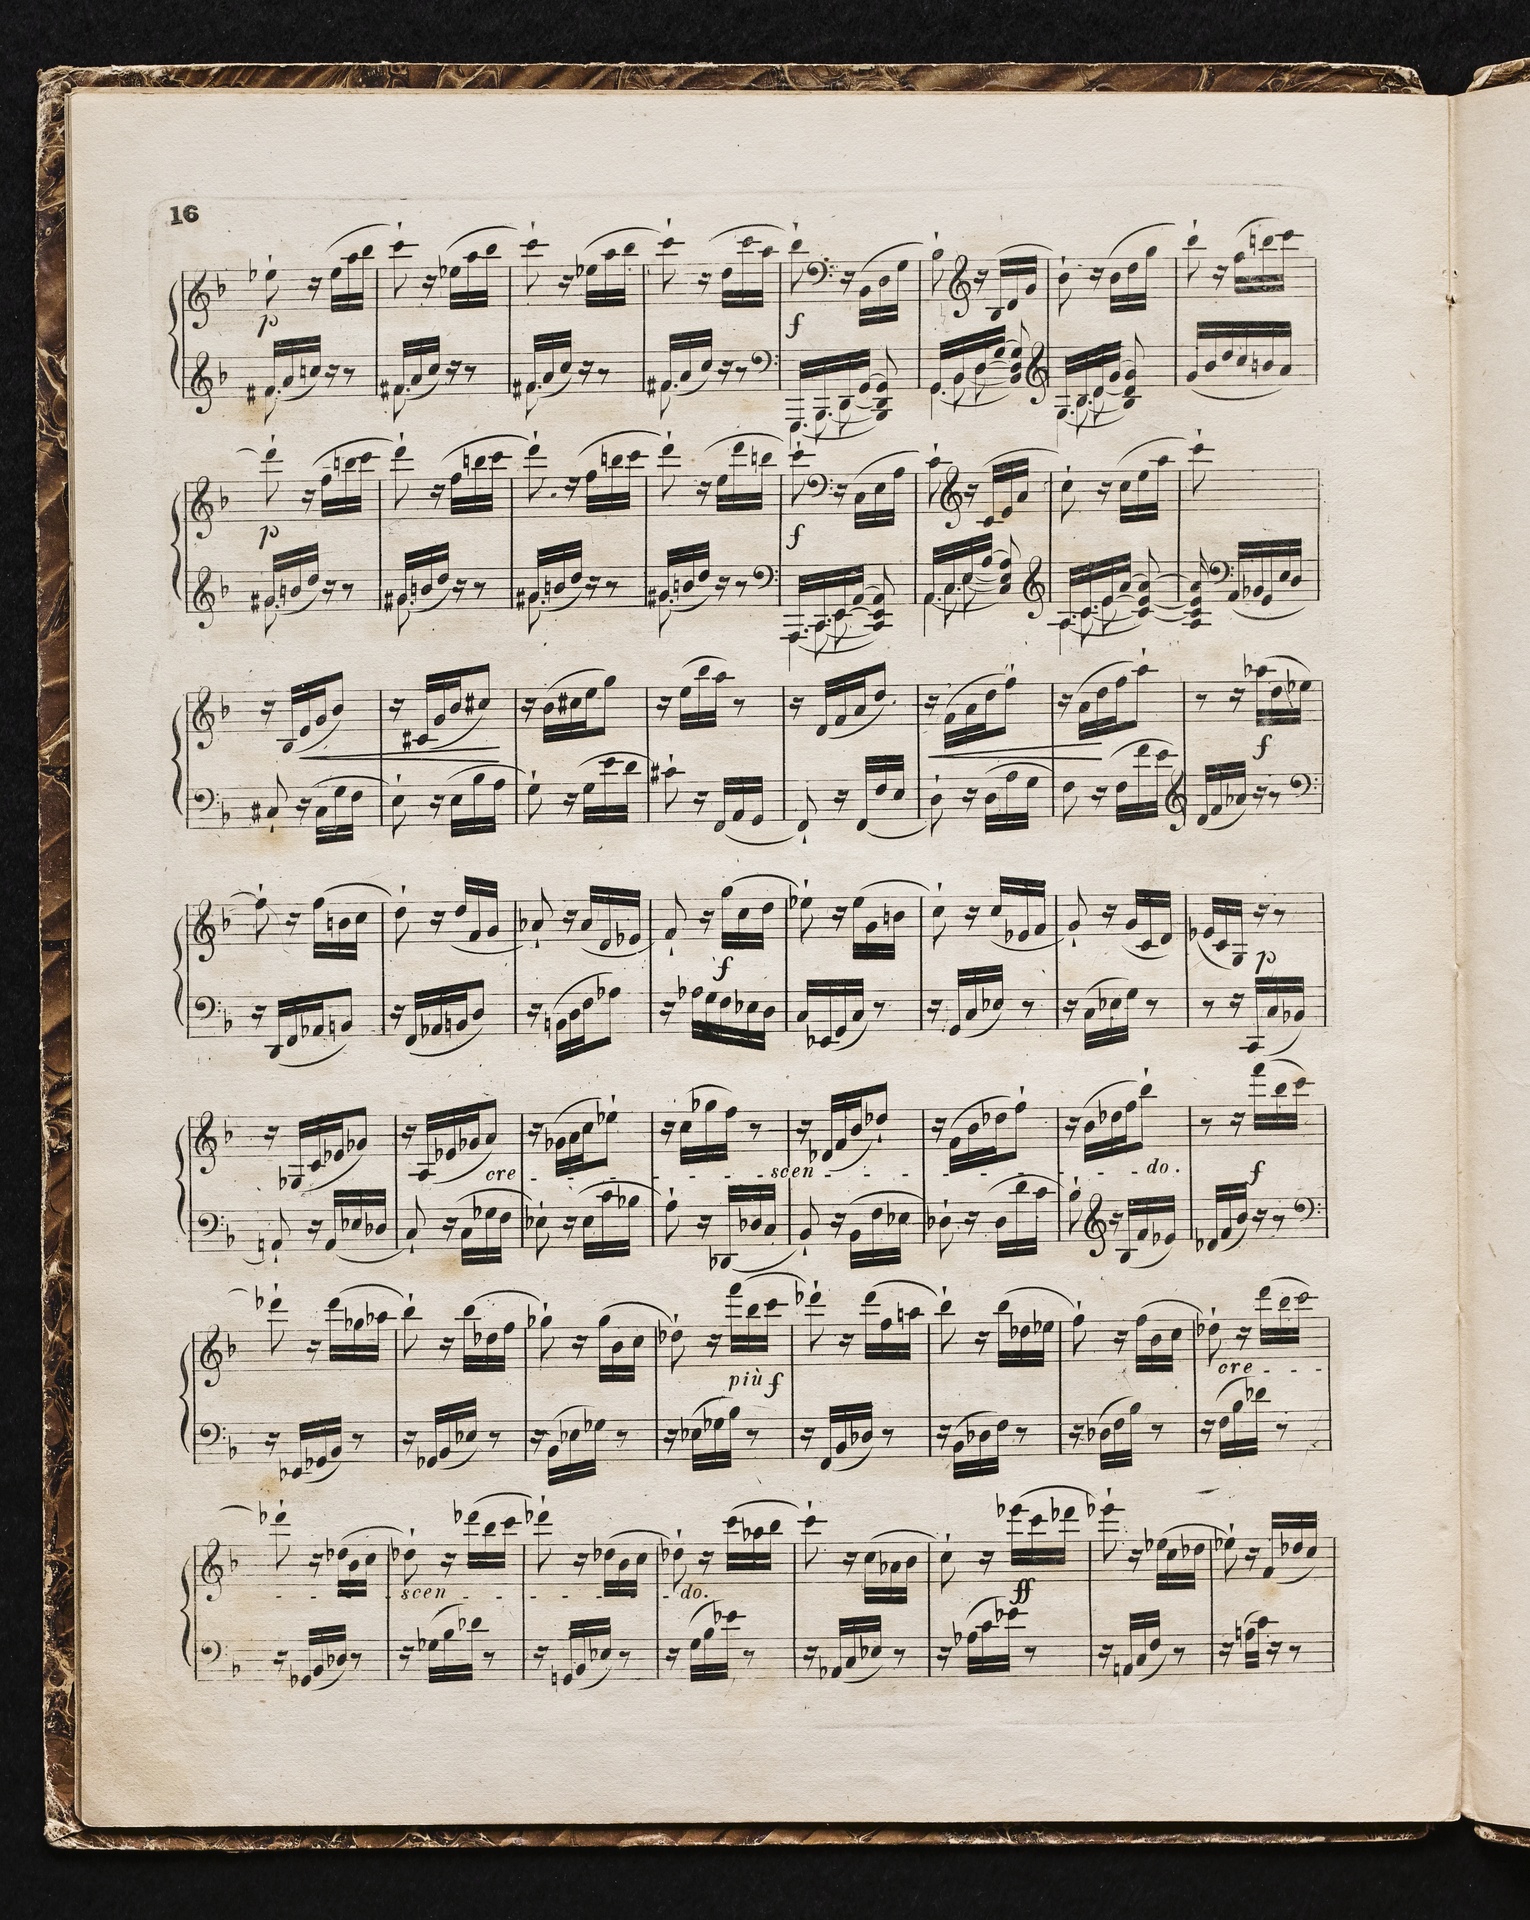 16
p f
p f
f
f p
cre - - - - - - - scen - - - - - - - - - do. f
più f cre - - -
- - - scen - - - - - - - do. ff